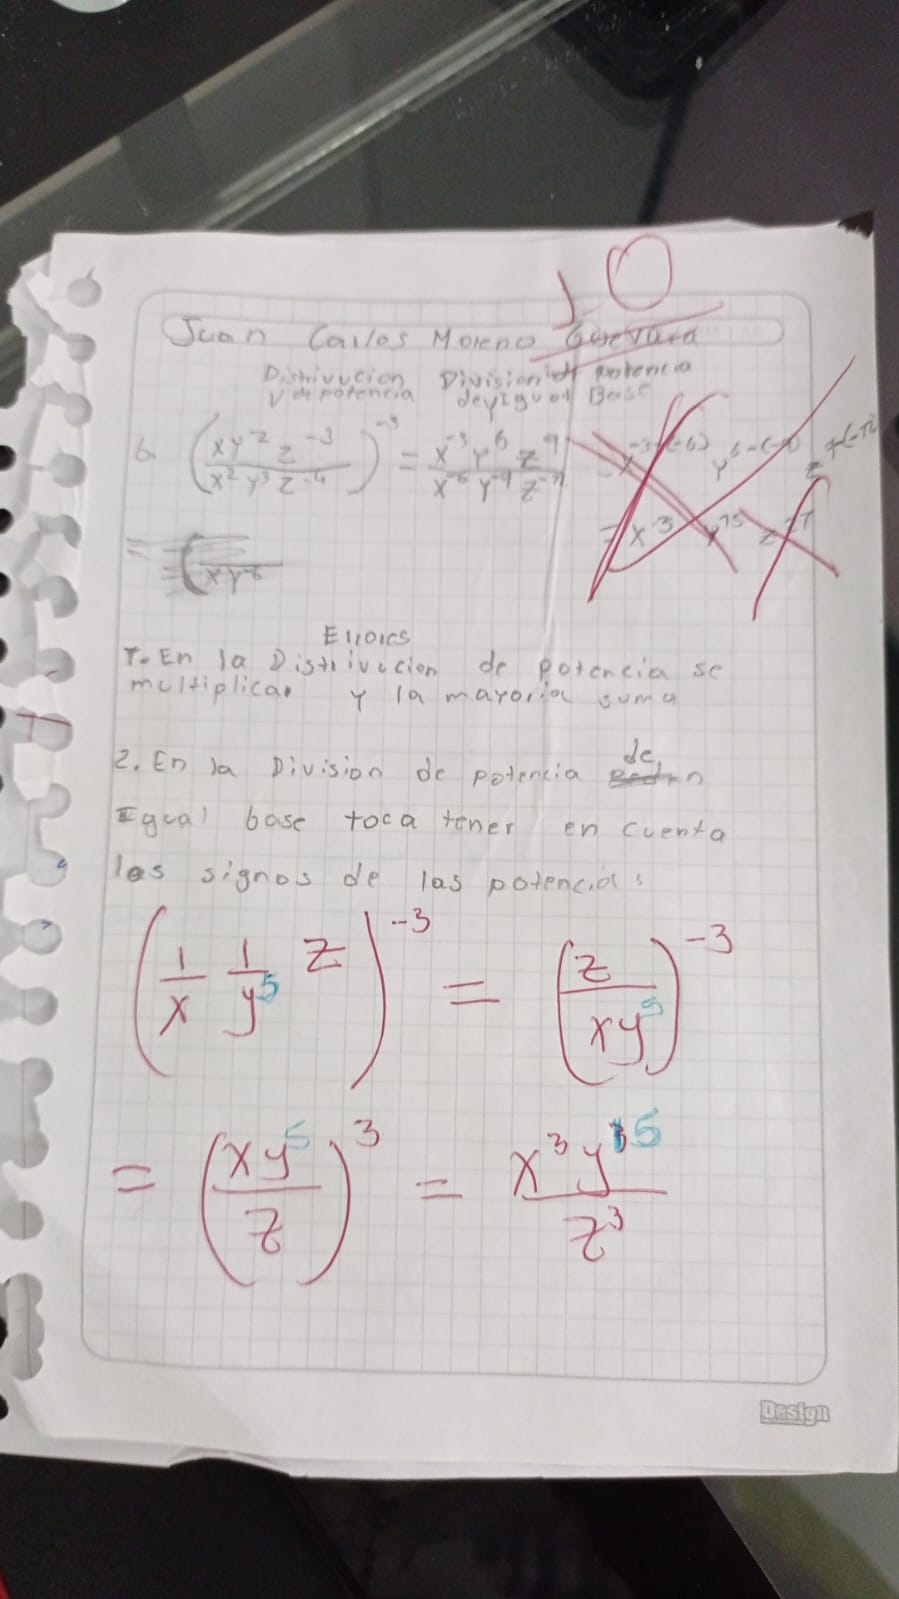 1.0
Juan Carlos Moreno Guevara
Distrivucion División de potencia
de potencia de igual Base
6. (xy^-2 z^-3 / x^2 y^3 z^-4)^-3 = x^-3 y^6 z^9 / x^-6 y^-9
= x^-3 y^15
xy
Errores
1. En la Distrivucion de potencia se
multiplican y la mayoria suma
2. En la Division de potencia de
Igual base toca tener en cuenta
los signos de las potencias
(1/x 1/y^5 z)^-3 = (z/xy^5)^-3
= (xy^5/z)^3 = x^3 y^15/z^3
Design